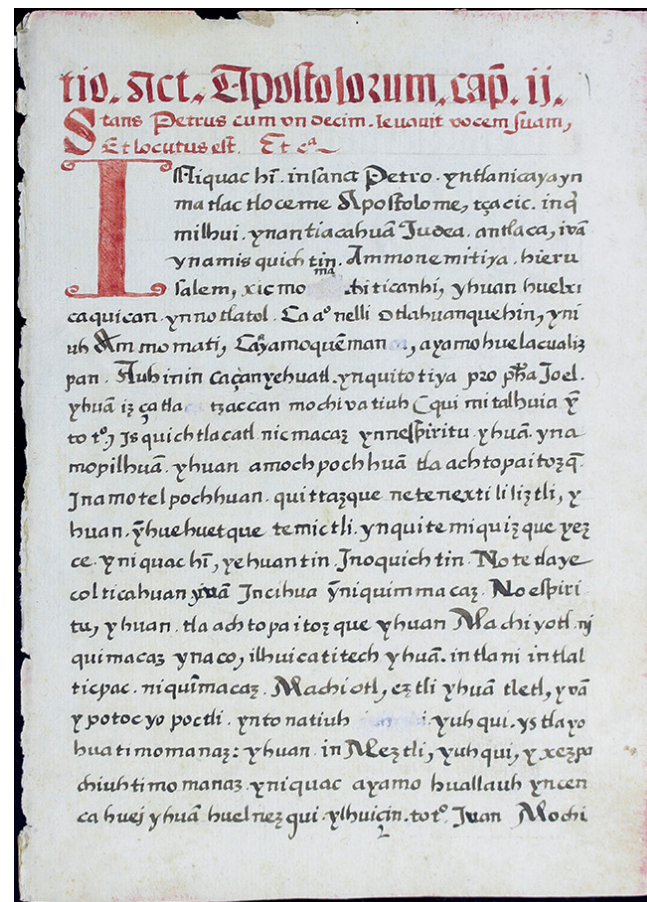 3
tio. Act. Apostolorum. cap̃. ij.
Stans Petrus cum vn decim. leuauit vocem suam,
Et locutus est. Et cᵃ
INiquac hĩ. in sanct Petro. yntlanicaya yn
matlac tloceme Apostolome, tçacic. inq̃
milhui. ynantiacahuã Judea. antlaca, ivã
ynamis quich tin. Ammonemitiya. hieru
ma
salem, xic mo hiticanhi, yhuan huelxi
caquican. ynnotlatol. Ca aº nelli otlahuanquehin, yni
uh Am momati, Cayamoquẽman, ayamo huelacualiz
pan. Auh inin caçanyehuatl. ynquitotiya pro pħa Joel.
yhuã iz çatla tzaccan mochivatiuh (qui mitalhuia ỹ
to tº) Js quich tlacatl nicmacaz ynnespiritu. yhuã. yna
mopilhuã. yhuan amoch pochhuã tla achtopaitozq̃.
Jnamotelpochhuan. quittazque netenextililiztli, y
huan. ỹhuehuetque temictli. ynquitemiquizque yez
ce. yniquac hĩ, yehuantin. Jnoquichtin. Notetlaye
colticahuan yuã Jncihua ỹniquimmacaz. Noespiri
tu, yhuan. tla achtopaitoz que yhuan Machiyotl. nj
quimacaz ynaco, ilhuicatitech yhuã. intlani intlal
ticpac. niquĩmacaz. Machiotl, eztli yhuã tletl, yvã
ypotocyo poctli. yntonatiuh yuhqui. ystlayo
huatimomanaz: yhuan in Meztli, yuhqui, yxezpo
chiuhtimomanaz. yniquac ayamo huallauh yncen
ca huej yhuã huelnezqui. ylhuiçin. totº. Juan Mochi